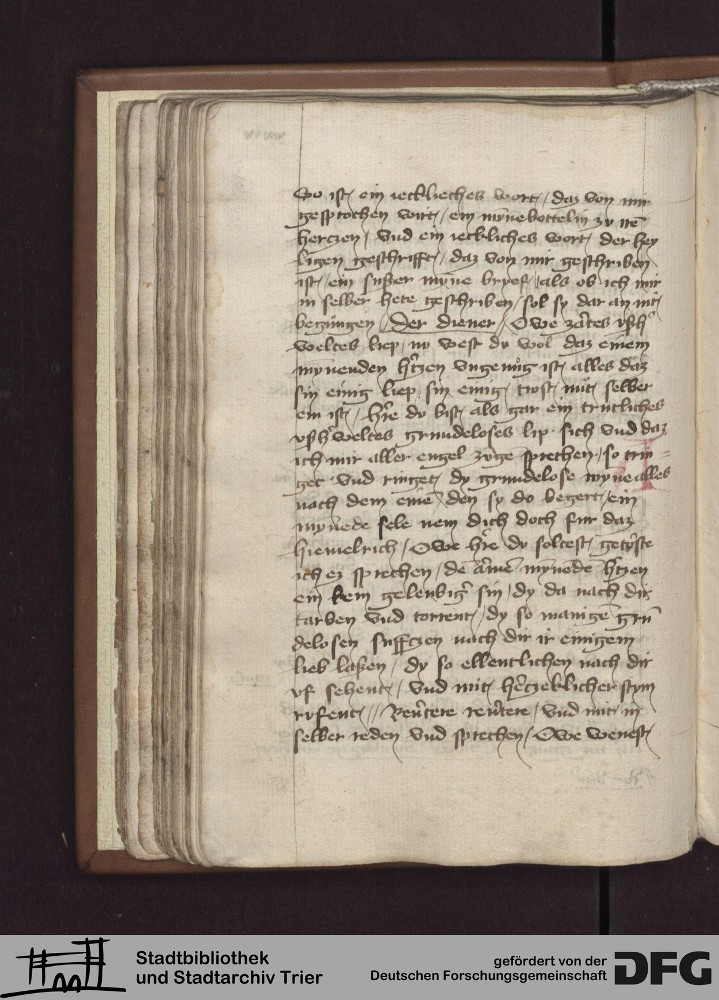 So ist ein iecklieches wort / daz von mir
gesprochen wirt / ein mynebottelin zu
herczen / vnd ein ieckliches wort der hey
ligen geschrifft / daz von mir geschriben
ist / ein sußer myne bryef / als ob ich mir
in selber hete geschriben / sol sy dar an nit
begnugen / Der diener / Owe zartes vsh'
weltes liep / nv west dv wol daz einem
mynenden h'tzen vngenug ist alles daz
sin einig liep sin einig trost mit selber
ein ist / h're dv bist als gar ein trutliches
vsh'weltes grundeloses lip sich vnd daz
ich mir aller engel zvge sprechen / so trin=
get vnd ringet dy grundelose myne alles
nach dem eine den sy do begert / ein
mynede sele nem dich doch fur daz
hiemelrich / Owe h're dv soltest getorste
ich ez sprechen / de arme mynede h'tzen
ein kem geleubig' sin / dy da nach dir
tarben vnd torrent / dy so manige grun
delosen suffczen nach dir ir einigem
lieb laßen / dy so ellentlichen nach dir
vf sehent / vnd mit h'tzeklicher stym
rvfent // Reu'tere reu'tere / vnd mit in
selber reden vnd sprechen / Owe wenest
Stadtbibliothek
und Stadtarchiv Trier
gefördert von der
Deutschen Forschungsgemeinschaft
DFG